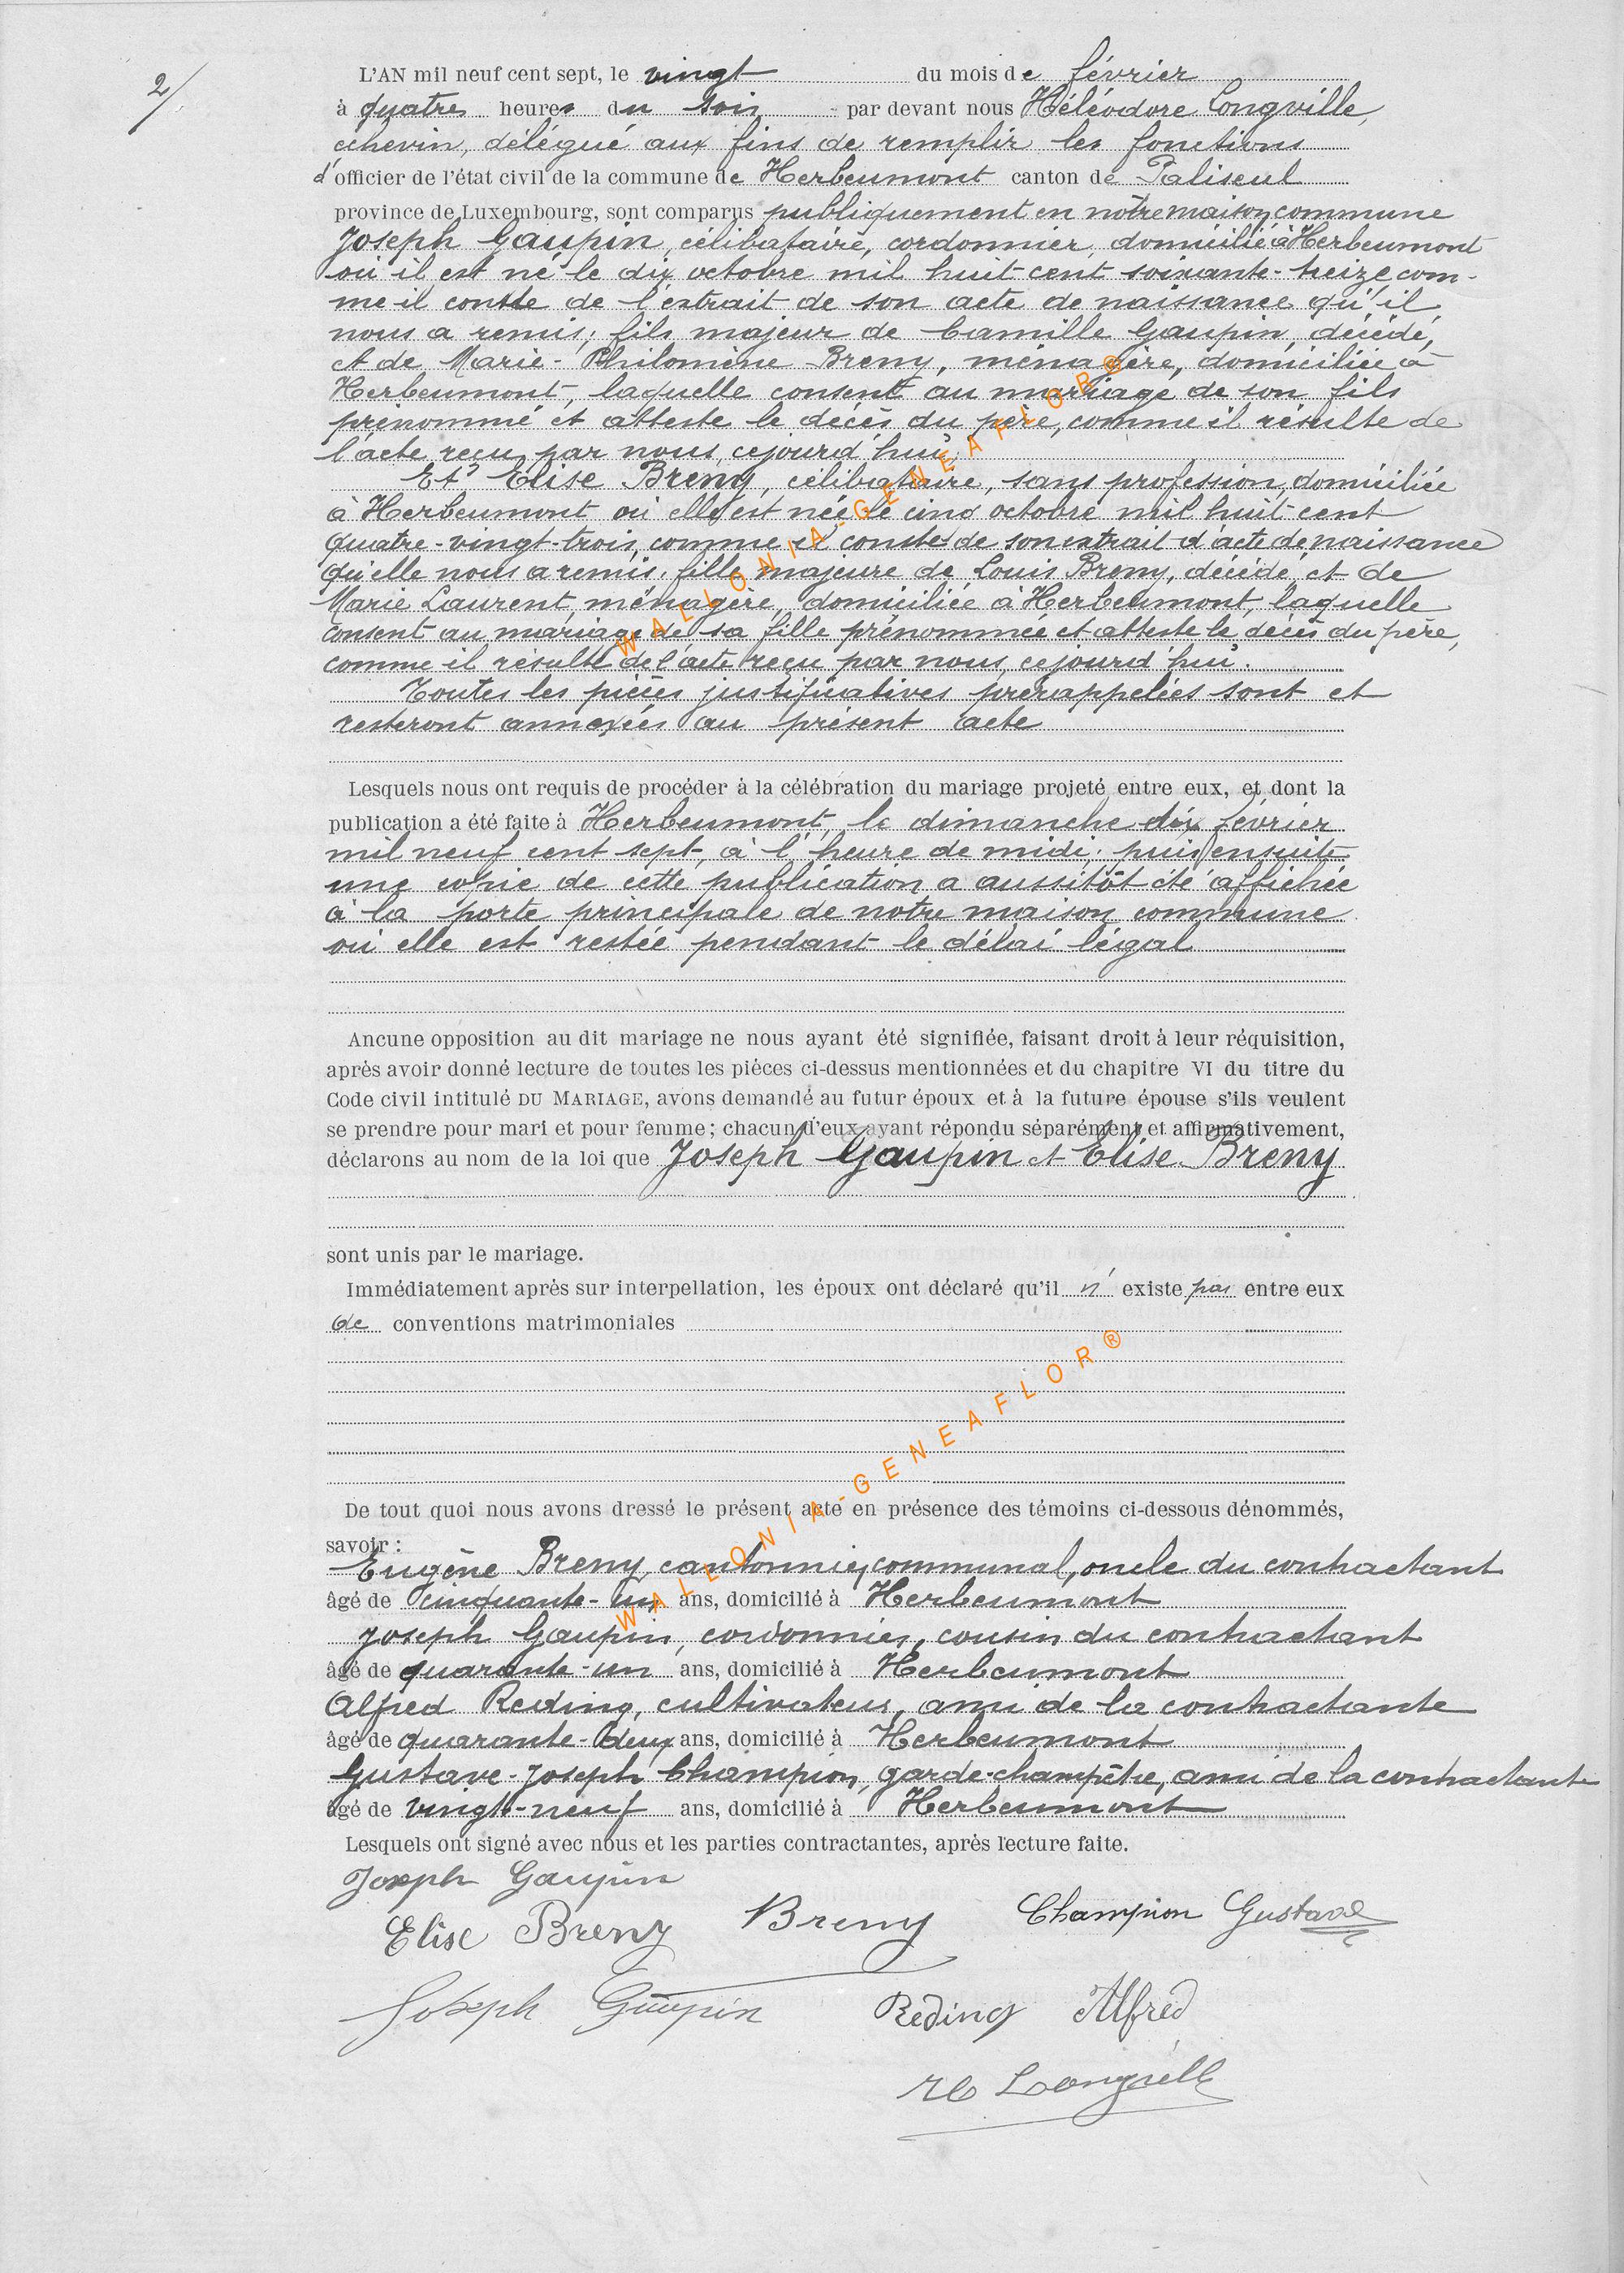 2/
L'AN mil neuf cent sept, le vingt du mois de février
à quatre heures du soir par devant nous Héléodore Longville,
échevin, délégué aux fins de remplir les fonctions
d'officier de l'état civil de la commune de Herbeumont canton de Paliseul
province de Luxembourg, sont comparus publiquement en nôtre maison commune
Joseph Gaupin, célibataire, cordonnier, domicilié à Herbeumont
où il est né le dix octobre mil huit cent soixante-treize com-
me il conste de l'extrait de son acte de naissance qu'il
nous a remis; fils majeur de Camille Gaupin, décédé,
et de Marie-Philomène Breny, ménagère, domiciliée à
Herbeumont, laquelle consent au mariage de son fils
prénommé et atteste le décès du père, comme il résulte de
l'acte reçu par nous, cejourd'hui;
Et Elise Breny, célibataire, sans profession, domiciliée
à Herbeumont où elle est née le cinq octobre mil huit cent
quatre-vingt-trois, comme il conste de son extrait d'acte de naissance
qu'elle nous a remis; fille majeure de Louis Breny, décédé, et de
Marie Laurent, ménagère, domiciliée à Herbeumont, laquelle
consent au mariage de sa fille prénommée et atteste le décès du père,
comme il résulte de l'acte reçu par nous, cejourd'hui.
Toutes les pièces justificatives prérappelées sont et
resteront annexées au présent acte
Lesquels nous ont requis de procéder à la célébration du mariage projeté entre eux, et dont la
publication a été faite à Herbeumont, le dimanche dix février
mil neuf cent sept, à l'heure de midi; puis ensuite
une copie de cette publication a aussitôt été affichée
à la porte principale de notre maison commune
où elle est restée pendant le délai légal.
Aucune opposition au dit mariage ne nous ayant été signifiée, faisant droit à leur réquisition,
après avoir donné lecture de toutes les piéces ci-dessus mentionnées et du chapitre VI du titre du
Code civil intitulé DU MARIAGE, avons demandé au futur époux et à la future épouse s'ils veulent
se prendre pour mari et pour femme; chacun d'eux ayant répondu séparément et affirmativement,
déclarons au nom de la loi que Joseph Gaupin et Elise Breny
sont unis par le mariage.
Immédiatement après sur interpellation, les époux ont déclaré qu'il n'existe pas entre eux
de conventions matrimoniales
De tout quoi nous avons dressé le présent acte en présence des témoins ci-dessous dénommés,
savoir :
Eugène Breny, cantonnier communal, oncle du contractant
âgé de cinquante-un ans, domicilié à Herbeumont
Joseph Gaupin, cordonnier, cousin du contractant
âgé de quarante-un ans, domicilié à Herbeumont
Alfred Reding, cultivateur, ami de la contractante
âgé de quarante-deux ans, domicilié à Herbeumont
Gustave-Joseph Champion, garde-champêtre, ami de la contractante
âgé de vingt-neuf ans, domicilié à Herbeumont
Lesquels ont signé avec nous et les parties contractantes, après lecture faite.
Joseph Gaupin
Elise Breny Breny Champion Gustave
Joseph Gaupin Reding Alfred
H Longville
WALLONIA-GENEAFLOR®
WALLONIA-GENEAFLOR®